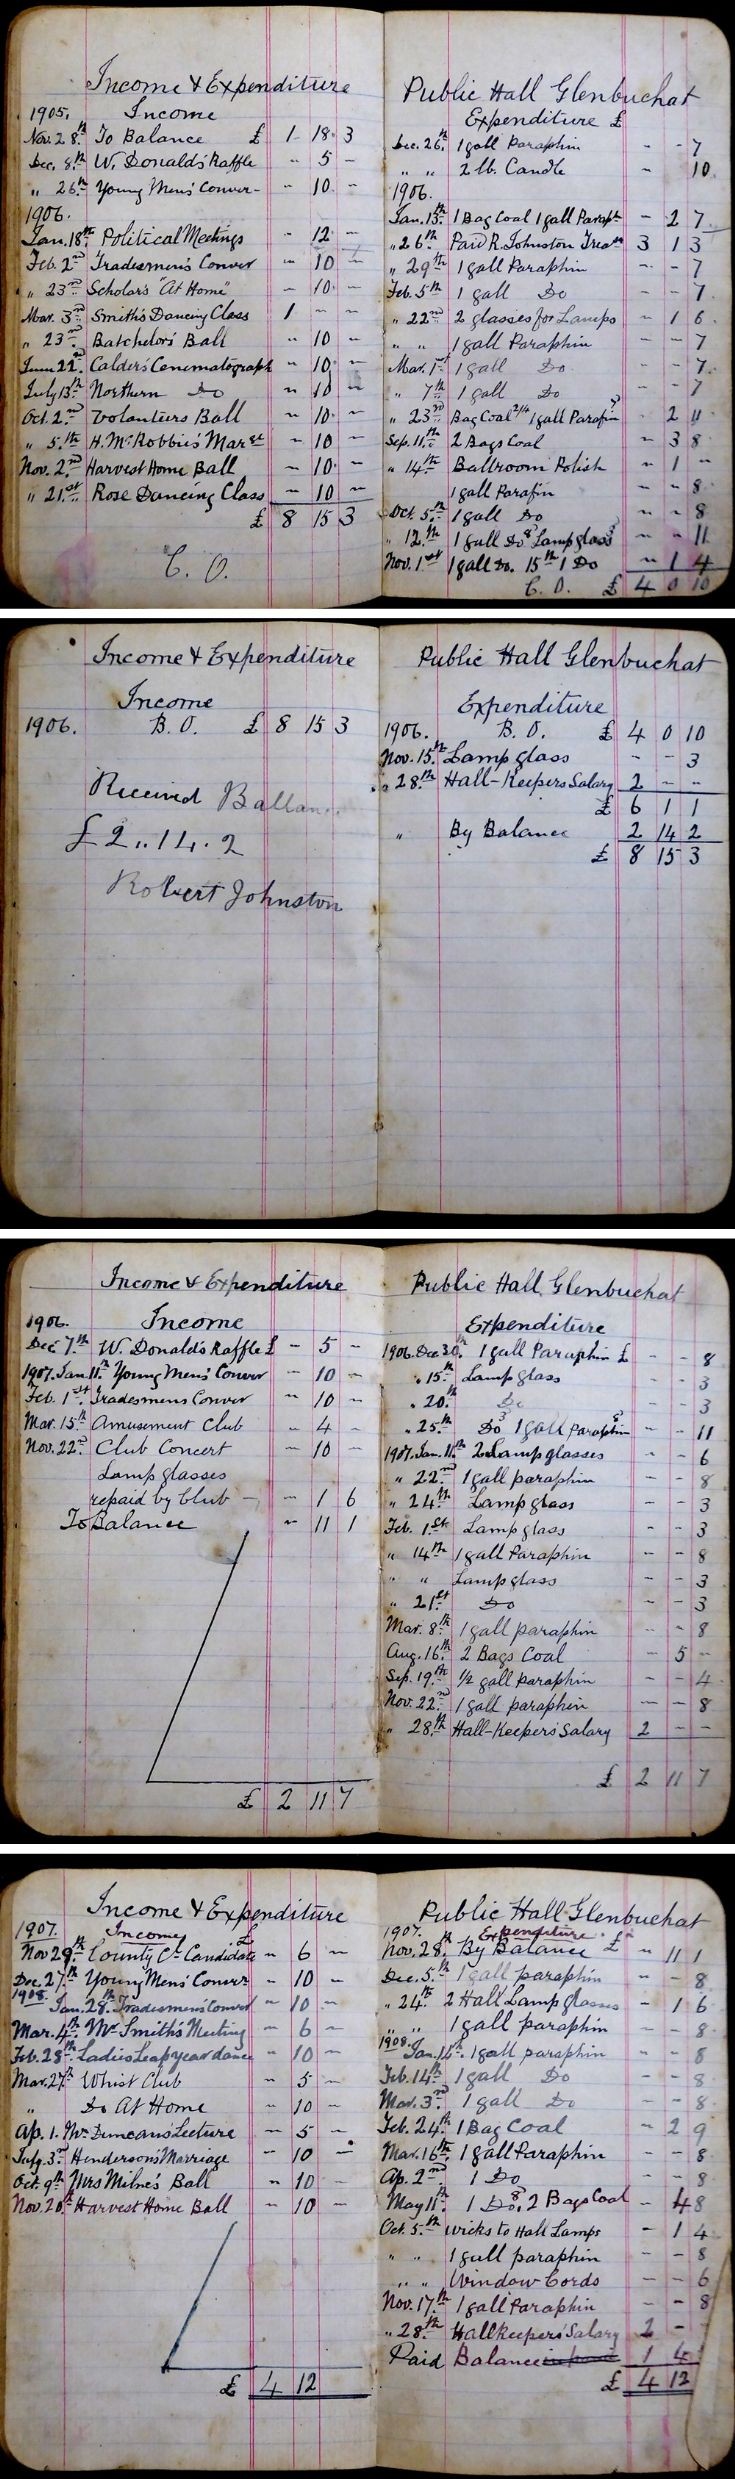 Income & Expenditure
1905. Income
Nov. 28th To Balance £ 1 18 3
Dec. 8th W. Donald's Raffle - 5 -
" 26th Young Men's Conver- - 10 -
1906.
Jan. 18th Political Meetings - 12 -
Feb. 2nd Tradesmen's Conver - 10 -
" 23rd Scholar's "At Home" - 10 -
Mar. 3rd Smith's Dancing Class 1 - -
" 23rd Batchelors Ball - 10 -
June 22nd Calder's Cenematograph - 10 -
July 13th Northern Do - 10 -
Oct. 2nd Volunteers Ball - 10 -
" 5th H. McRobbie's Marge - 10 -
Nov. 2nd Harvest Home Ball - 10 -
" 21st Rose Dancing Class - 10 -
£ 8 15 3
C. O.
Public Hall Glenbuchat
Expenditure £
Dec. 26th 1 gall Paraphin - - 7
" " 2 lb. Candle - 10
1906.
Jan. 13th 1 Bag Coal 1 gall Paraph - 2 7
" 26th Paid R. Johnston Treas 3 1 3
" 29th 1 gall Paraphin - - 7
Feb. 5th 1 gall Do - - 7
" 22nd 2 glasses for Lamps - 1 6
" " 1 gall Paraphin - - 7
Mar. 1st 1 gall Do - - 7
" 7th 1 gall Do - - 7
" 23rd Bag Coal 2/4 1 gall Parafin 7 - 2 11
Sep. 11th 2 Bags Coal - 3 8
" 14th Ballroom Polish - 1 -
1 gall Parafin - - 8
Oct. 5th 1 gall Do - - 8
" 12th 1 gall Do 8 Lamp glass 3 - - 11
Nov. 1st 1 gall Do. 15th 1 Do - 1 4
C. O. £ 4 0 10
Income & Expenditure
Income
1906. B. O. £ 8 15 3
Received Ballan
£2..14.2
Robert Johnston
Public Hall Glenbuchat
Expenditure
1906. B. O. £ 4 0 10
Nov. 15th Lamp glass - - 3
" 28th Hall-Keepers Salary 2 - -
£ 6 1 1
" By Balance 2 14 2
£ 8 15 3
Income & Expenditure
1906. Income
Dec 7th W. Donald's Raffle £ - 5 -
1907. Jan. 11th Young Men's Conver - 10 -
Feb. 1st Tradesmens Conver - 10 -
Mar. 15th Amusement Club - 4 -
Nov. 22nd Club Concert - 10 -
Lamp glasses
repaid by Club - - 1 6
To Balance - 11 1
£ 2 11 7
Public Hall Glenbuchat
Expenditure
1906. Dec 30th 1 gall Paraphin £ - - 8
" 15th Lamp glass - - 3
" 20th Do - - 3
" 25th Do 3 1 gall Paraphin 8 - - 11
1907. Jan. 11th 2 Lamp glasses - - 6
" 22nd 1 gall paraphin - - 8
" 24th Lamp glass - - 3
Feb. 1st Lamp glass - - 3
" 14th 1 gall Paraphin - - 8
" " Lamp glass - - 3
" 21st Do - - 3
Mar. 8th 1 gall paraphin - - 8
Aug. 16th 2 Bags Coal - 5 -
Sep. 19th 1/2 gall paraphin - - 4
Nov. 22nd 1 gall paraphin - - 8
" 28th Hall-Keepers Salary 2 - -
£ 2 11 7
Income & Expenditure
1907. Income £
Nov 29th County Cl Candidate - 6 -
Dec. 27th Young Men's Conver - 10 -
1908. Jan. 28th Tradesmen's Conver - 10 -
Mar. 4th Mr Smith's Meeting - 6 -
Feb. 28th Ladies Leap year dance - 10 -
Mar. 27th Whist Club - 5 -
" Do At Home - 10 -
Ap. 1. Mr Duncan's Lecture - 5 -
July. 3rd Henderson's Marriage - 10 -
Oct. 9th Mrs Milne's Ball - 10 -
Nov. 20th Harvest Home Ball - 10 -
£ 4 12
Public Hall Glenbuchat
1907. Expenditure
Nov. 28th By Balance £ - 11 1
Dec. 5th 1 gall paraphin - - 8
" 24th 2 Hall Lamp glasses - 1 6
" " 1 gall paraphin - - 8
1908. Jan. 14th 1 gall paraphin - - 8
Feb. 14th 1 gall Do - - 8
Mar. 3rd 1 gall Do - - 8
Feb. 24th 1 Bag Coal - 2 9
Mar. 16th 1 gall Paraphin - - 8
Ap. 2nd 1 Do - - 8
May 11th 1 Do 8, 2 Bags Coal - 4 8
Oct. 5th wicks to Hall Lamps - 1 4
" " 1 gall paraphin - - 8
" " Window Cords - - 6
Nov. 17th 1 gall Paraphin - - 8
" 28th Hallkeepers' Salary 2 -
Paid Balance 1 4
£ 4 12